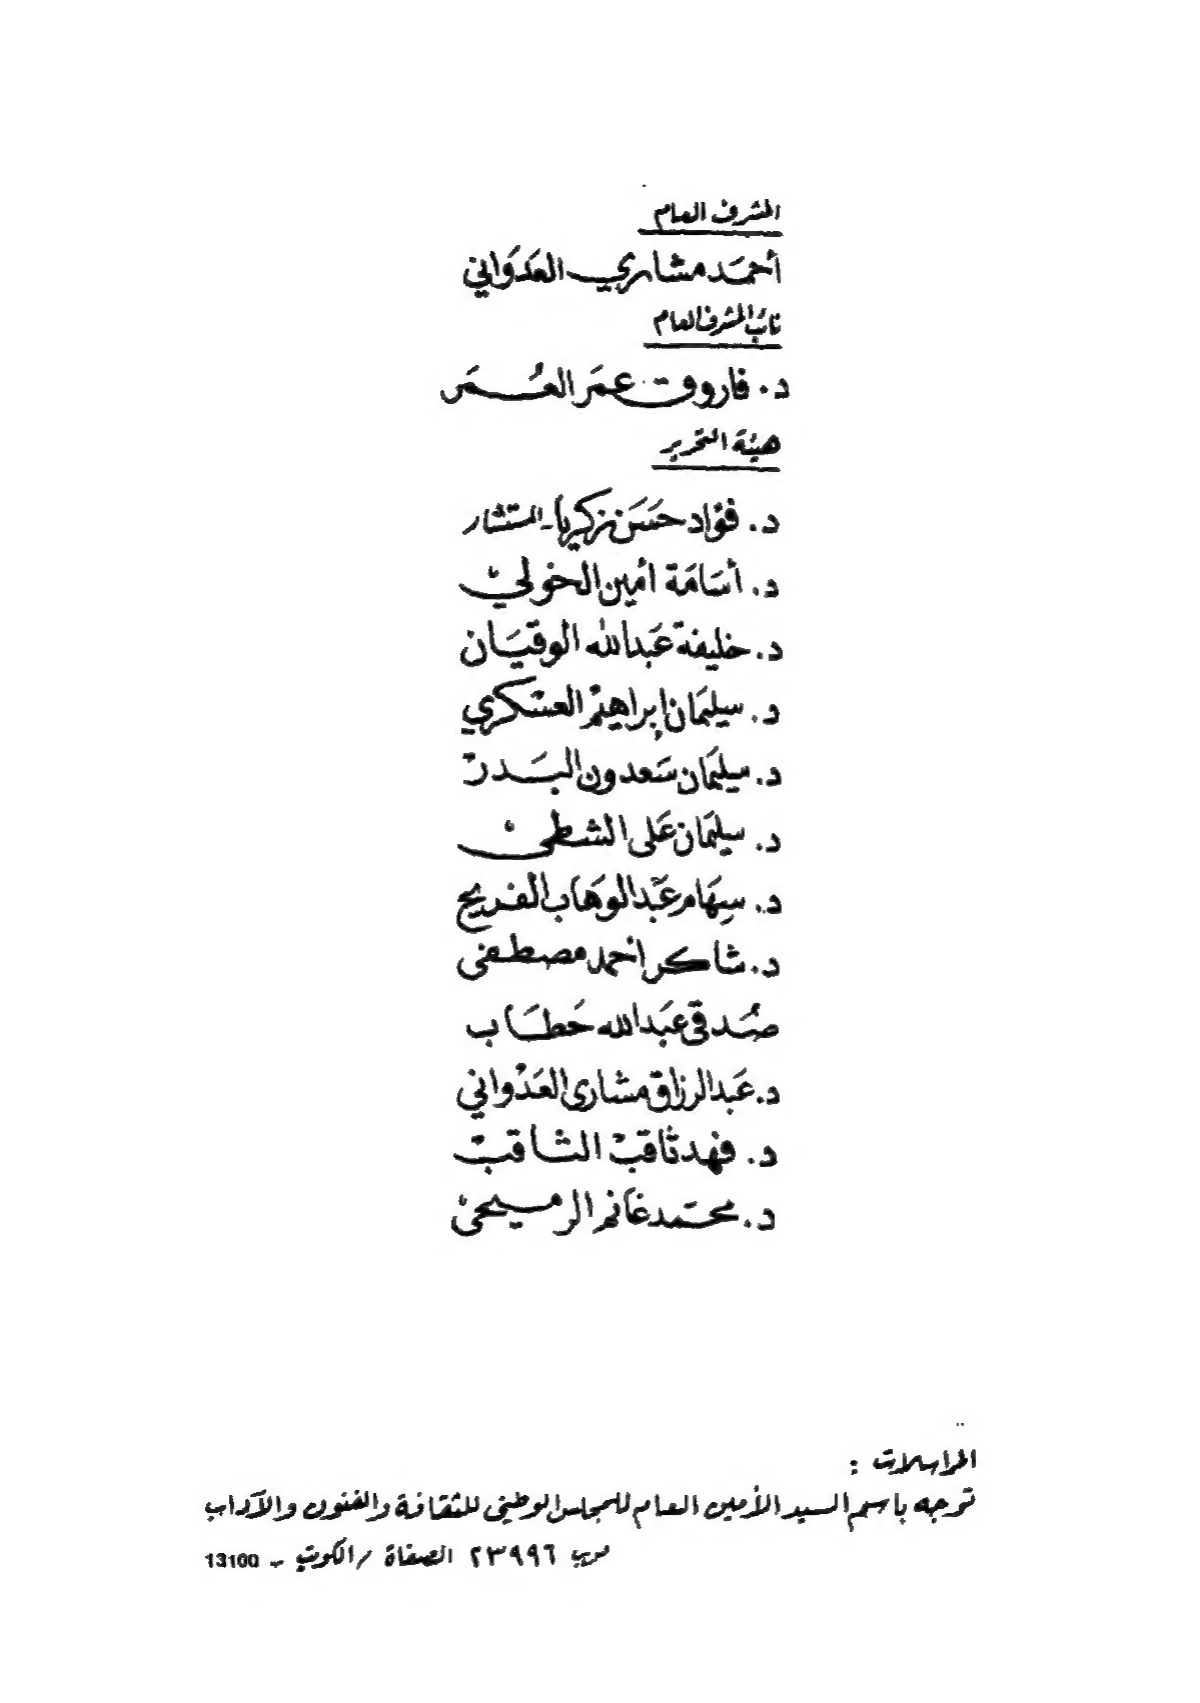 المشرف العام
أحمَد مشاري العَدوَاني
نائب المشرف العام
د. فاروق عمَر العُمَر
هيئة التحرير
د. فؤاد حسَن زكريا - المستشار
د. أسَامَة أمين الخولي
د. خليفة عَبدالله الوقيَان
د. سيلمَان إبراهيم العسْكري
د. سيلمَان سَعدون البَدر
د. سيلمَان عَلى الشطي
د. سِهَام عَبدالوهَاب الفريح
د. شاكر احمد مصطفى
صُدقي عَبدالله حَطاب
د. عَبدالرزاق مشارى العَدْواني
د. فهد ثاقبْ الثاقبْ
د. محمّد غانم الرميحي
المراسلات :
توجه باسم السيد الأمين العام للمجلس الوطني للثقافة والفنون والآداب
ص ب ٢٣٩٩٦ الصفاة / الكويت - 13100